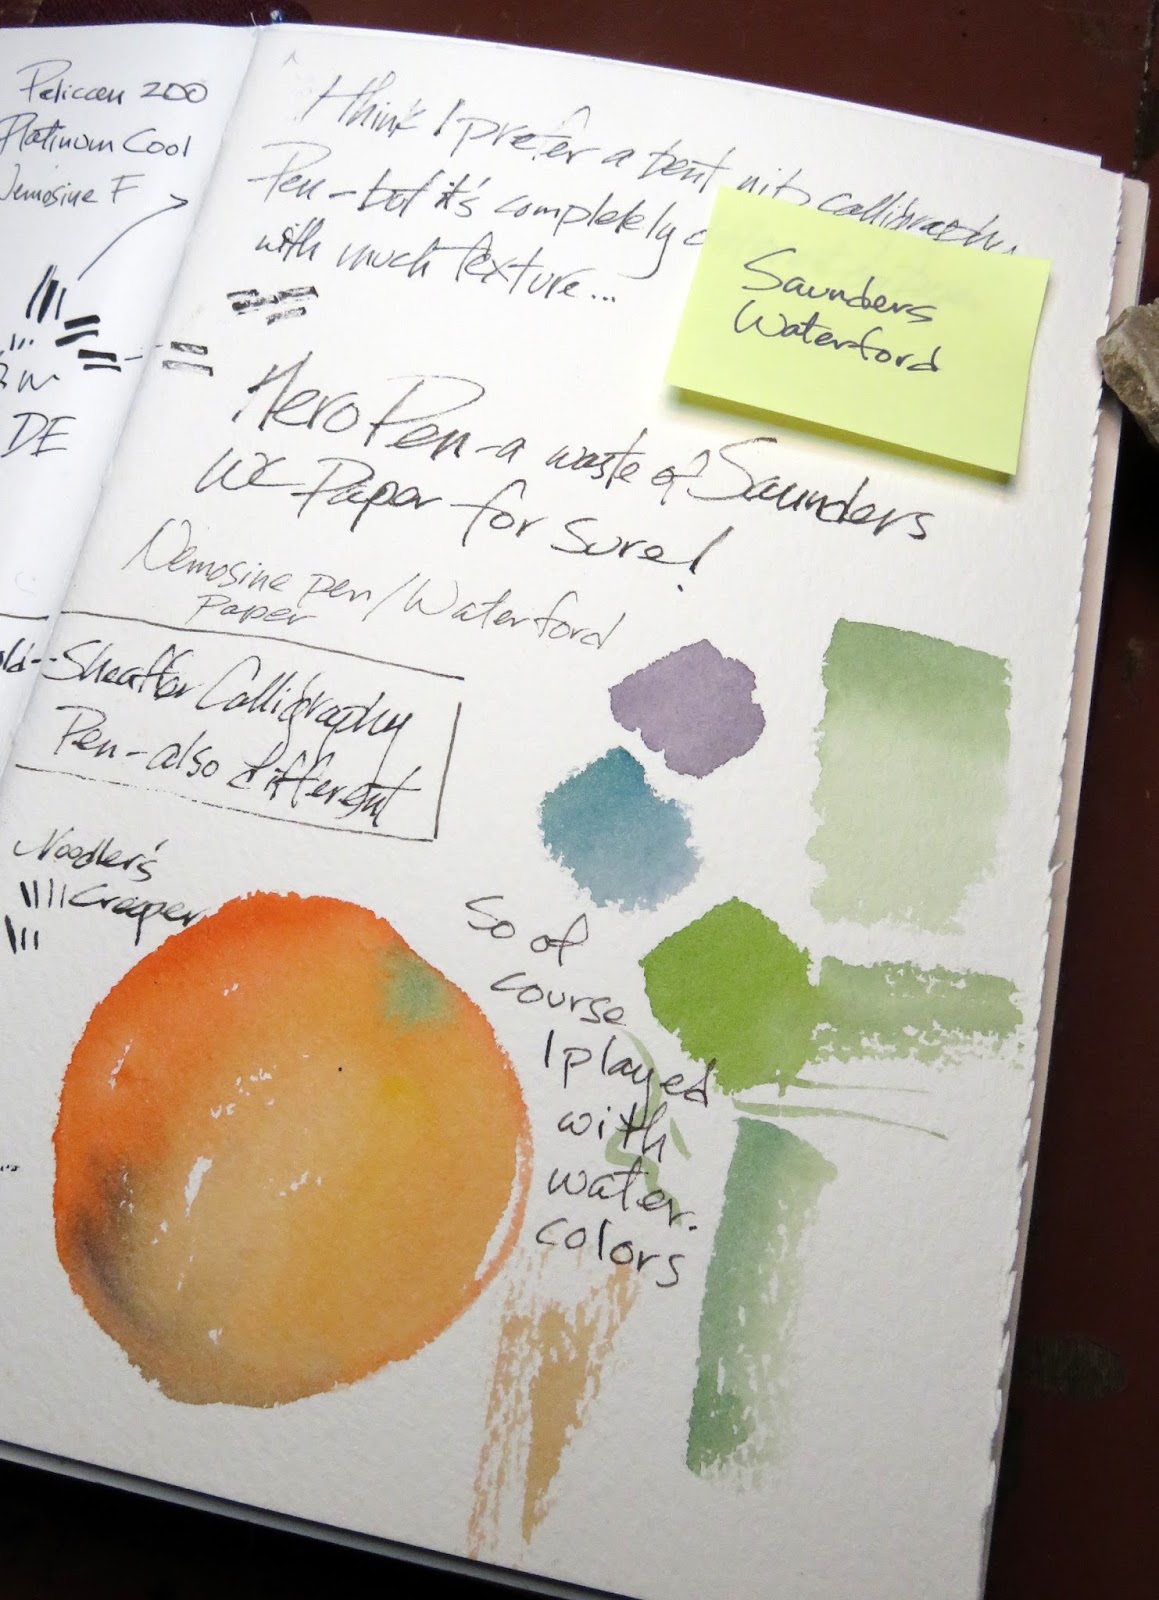 Pelican 200
Platinum Cool
Nemosine F
DE
I think I prefer a bent nib calligraphy
Pen - but it's completely
with much texture...
Saunders
Waterford
Hero Pen - a waste of Saunders
WC Paper for sure!
Nemosine pen/Waterford
paper
Sheaffer Calligraphy
Pen - also different
Noodler's
Creaper
So of
course
I played
with
water.
colors